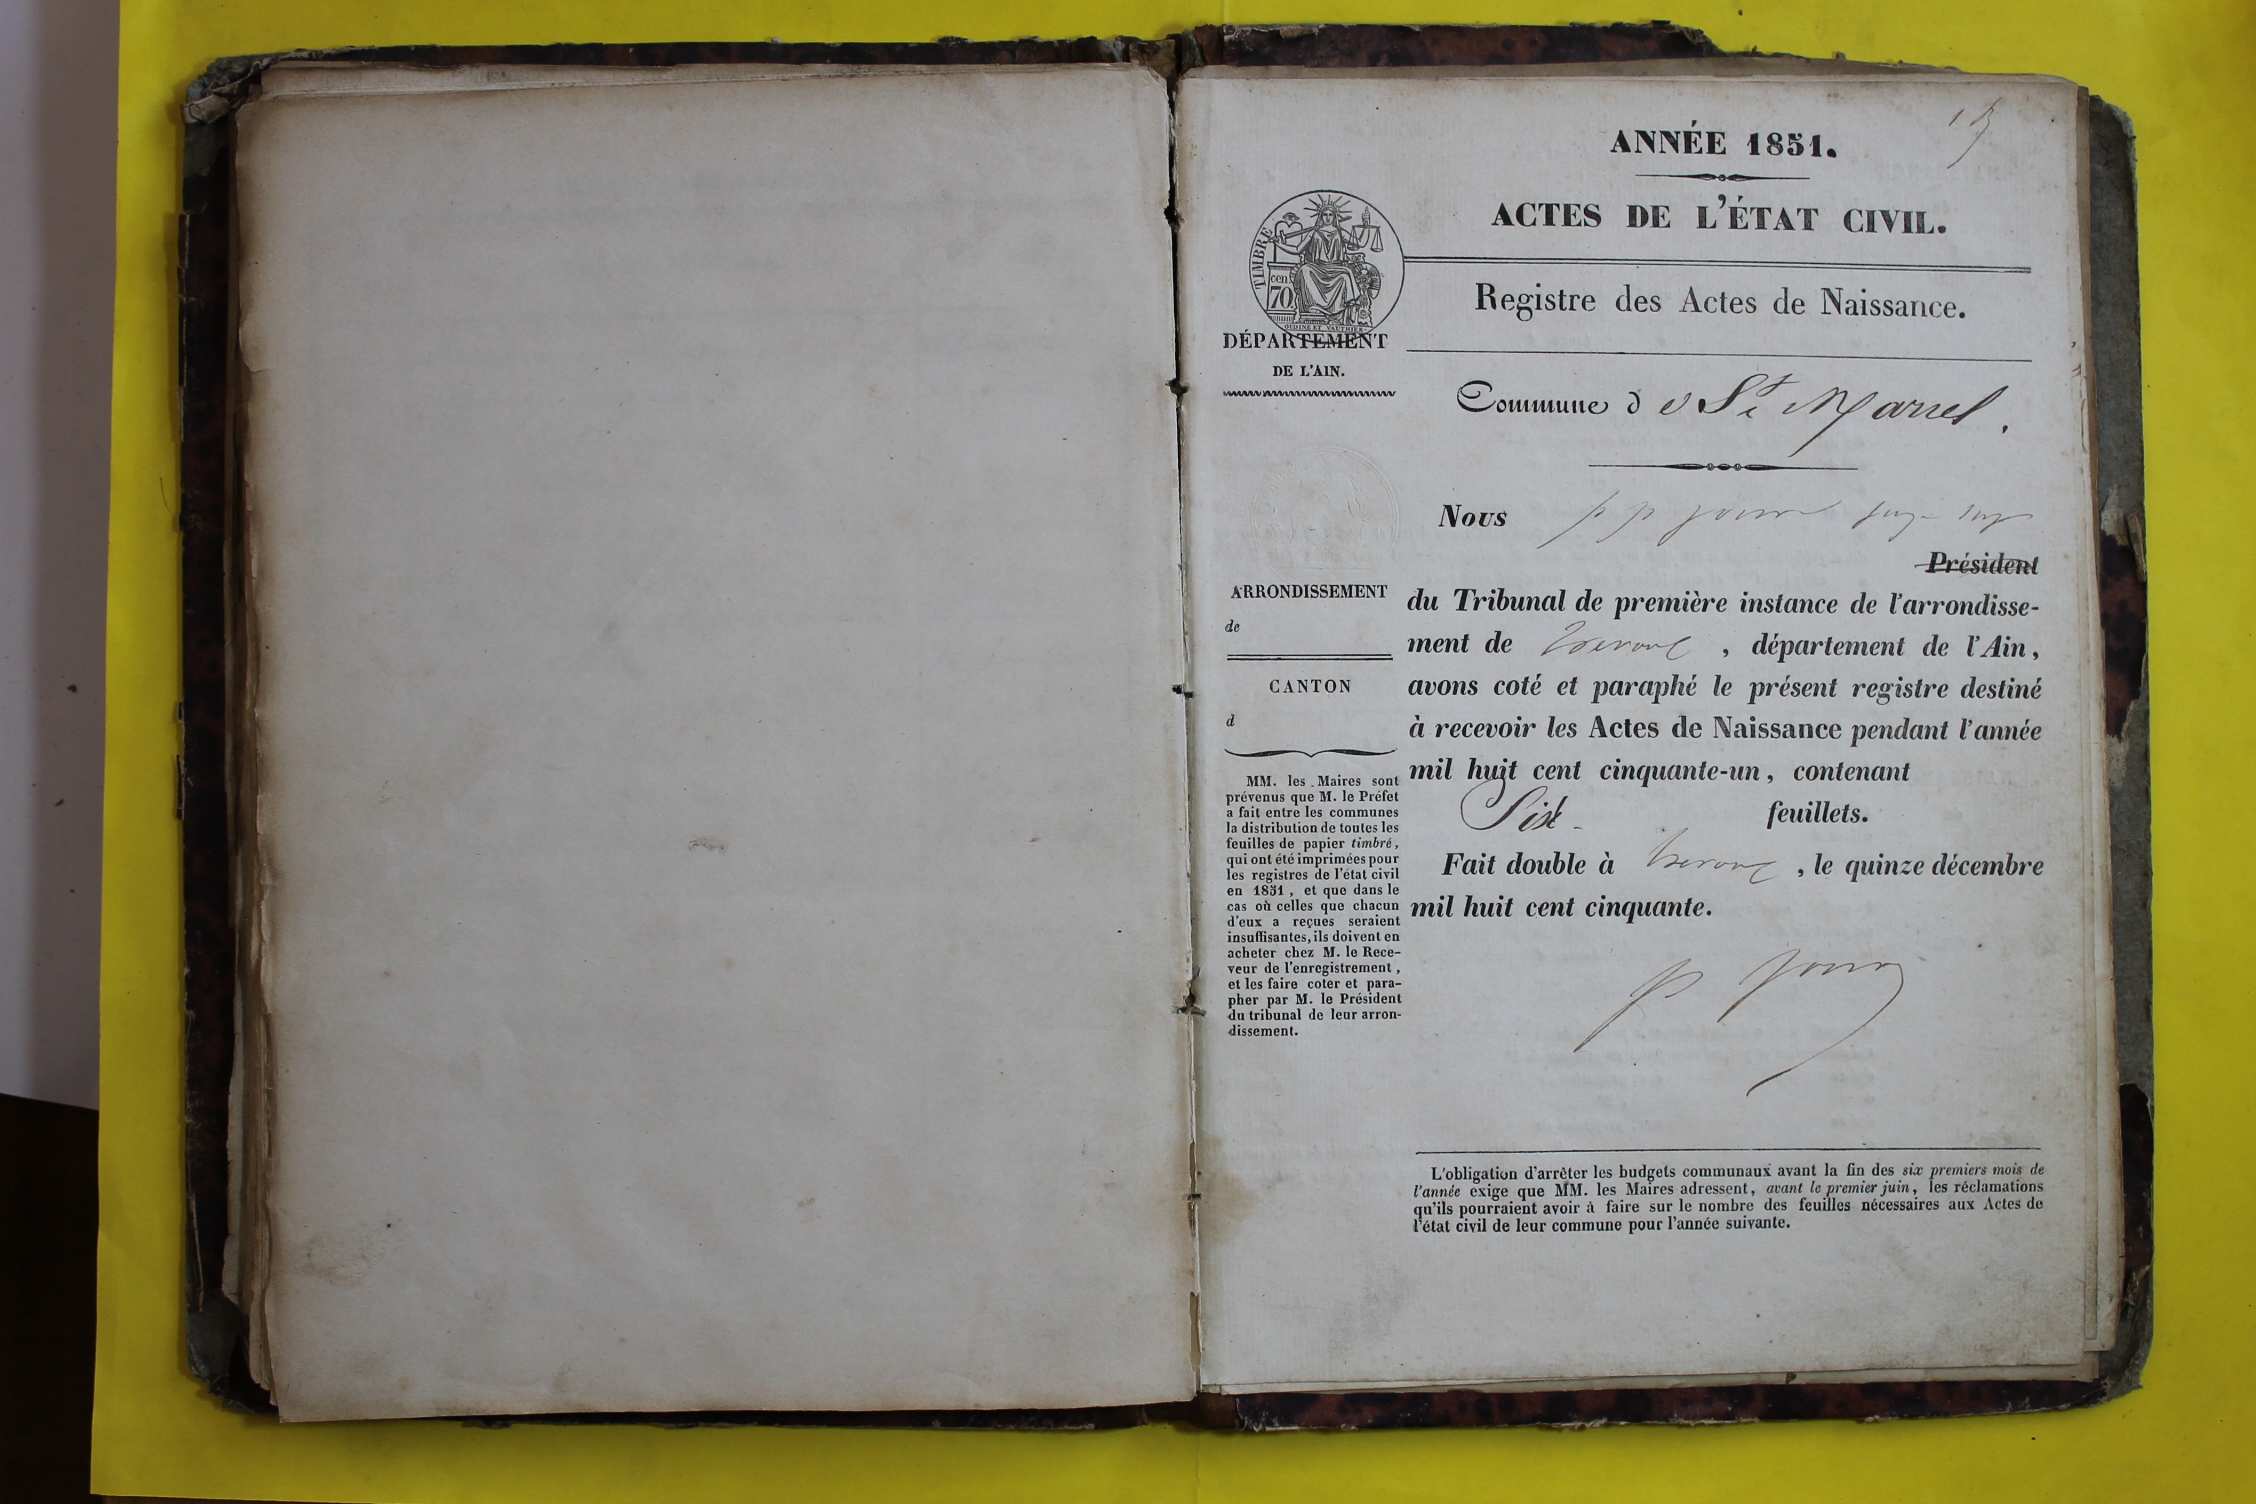 ANNÉE 1851.
ACTES DE L'ÉTAT CIVIL.
TIMBRE
cen
70
OUDINE ET VAUTHIER
Registre des Actes de Naissance.
DÉPARTEMENT
DE L'AIN.
Commune d e St Marcel.
Nous
Président
ARRONDISSEMENT
de
CANTON
d
du Tribunal de première instance de l'arrondisse-
ment de Trevoux, département de l'Ain,
avons coté et paraphé le présent registre destiné
à recevoir les Actes de Naissance pendant l'année
mil huit cent cinquante-un, contenant
Six feuillets.
Fait double à Trevoux, le quinze décembre
mil huit cent cinquante.
MM. les Maires sont
prévenus que M. le Préfet
a fait entre les communes
la distribution de toutes les
feuilles de papier timbré,
qui ont été imprimées pour
les registres de l'état civil
en 1851, et que dans le
cas où celles que chacun
d'eux a reçues seraient
insuffisantes, ils doivent en
acheter chez M. le Rece-
veur de l'enregistrement,
et les faire coter et para-
pher par M. le Président
du tribunal de leur arron-
dissement.
L'obligation d'arrêter les budgets communaux avant la fin des six premiers mois de
l'année exige que MM. les Maires adressent, avant le premier juin, les réclamations
qu'ils pourraient avoir à faire sur le nombre des feuilles nécessaires aux Actes de
l'état civil de leur commune pour l'année suivante.